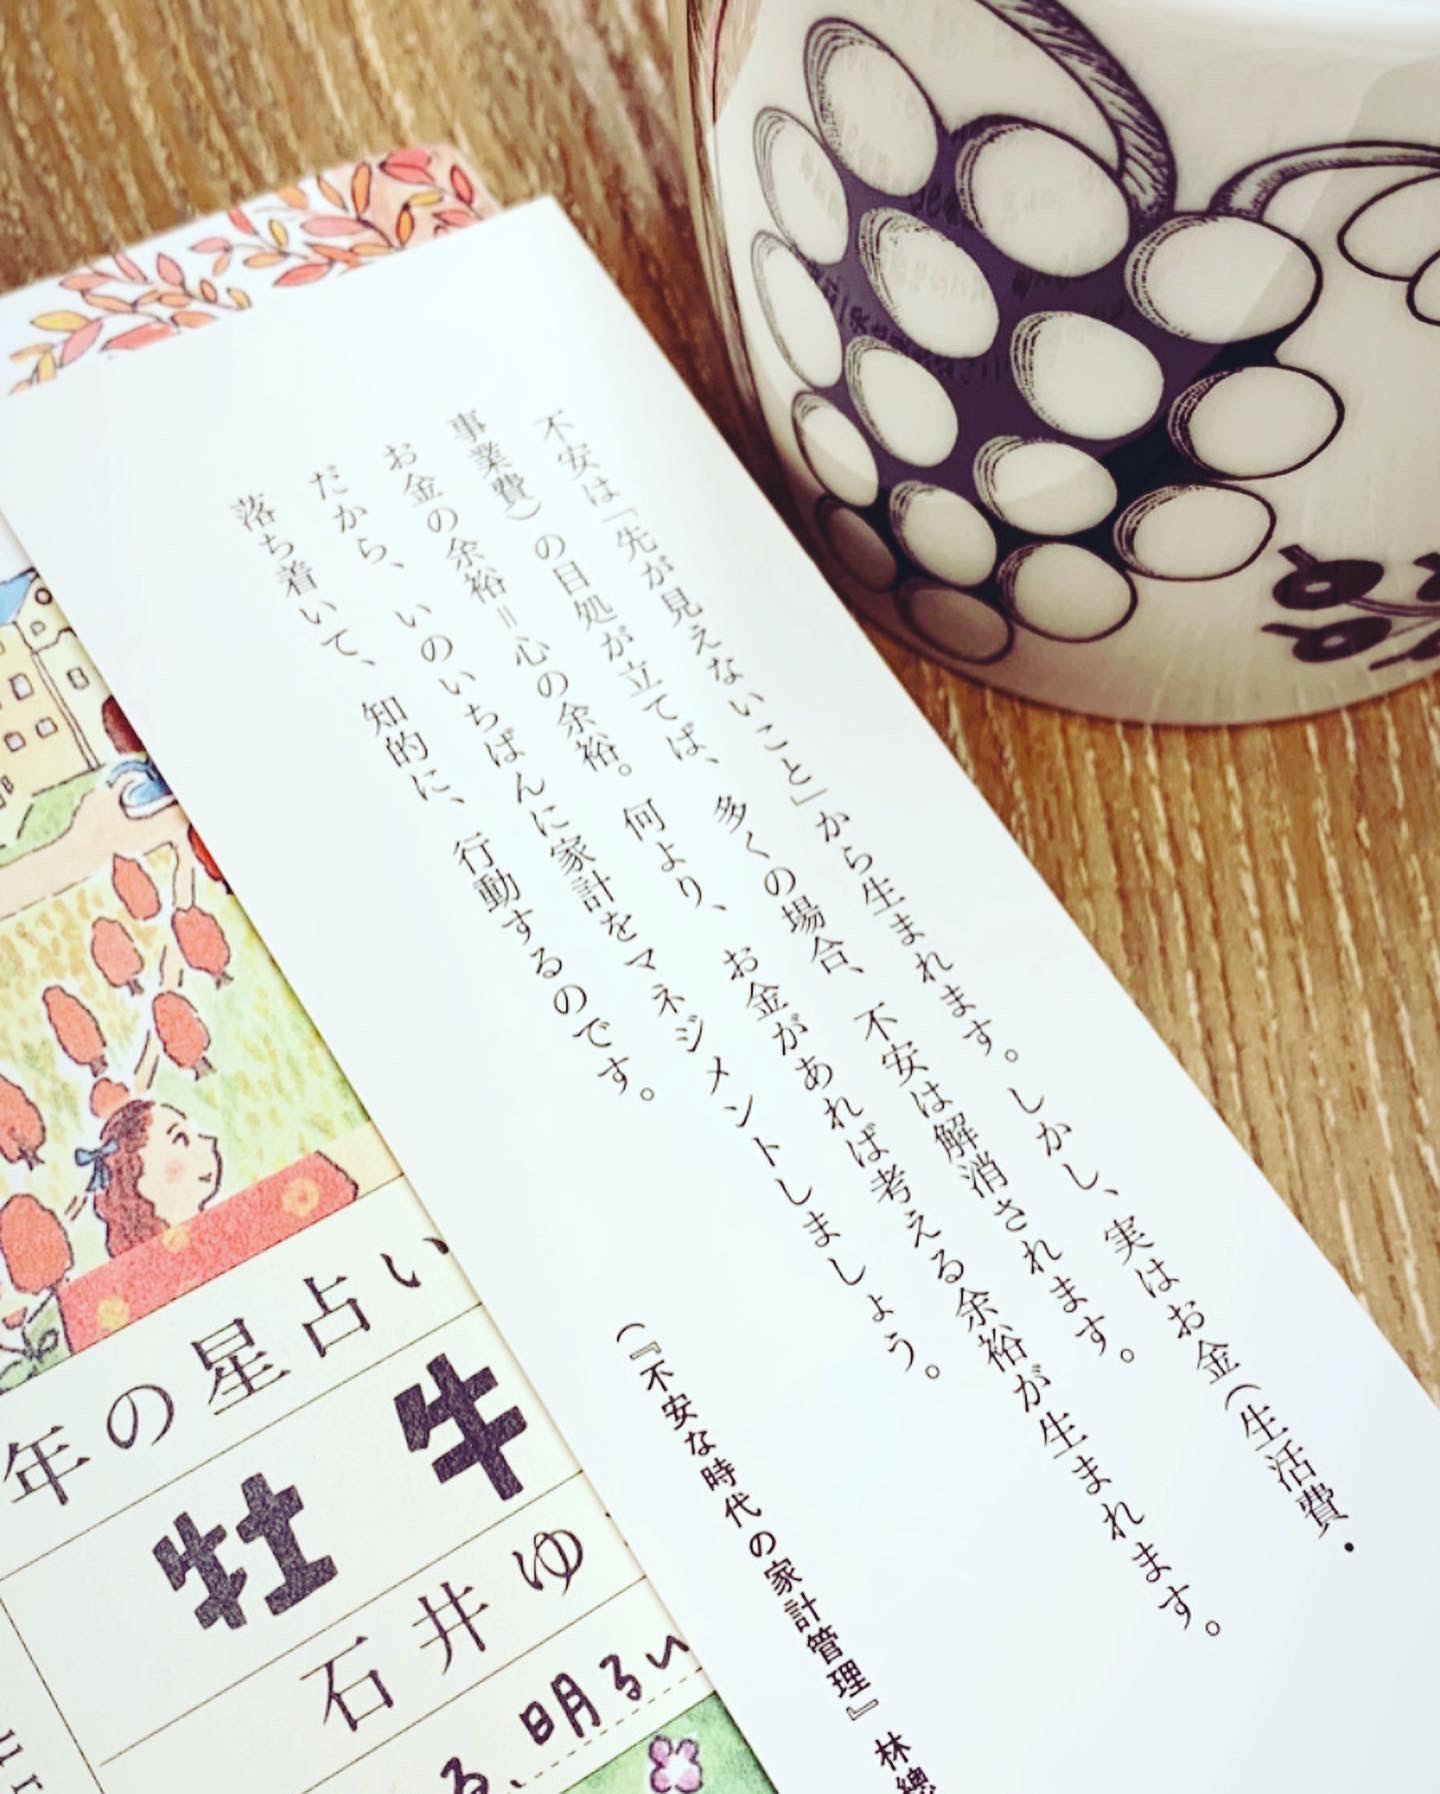 不安は「先が見えないこと」から生まれます。しかし、実はお金(生活費・
事業費)の目処が立てば、多くの場合、不安は解消されます。
お金の余裕=心の余裕。何より、お金があれば考える余裕が生まれます。
だから、いのいちばんに家計をマネジメントしましょう。
落ち着いて、知的に、行動するのです。
(『不安な時代の家計管理』林總
年の星占い
牡牛
石井ゆ
る、明るい